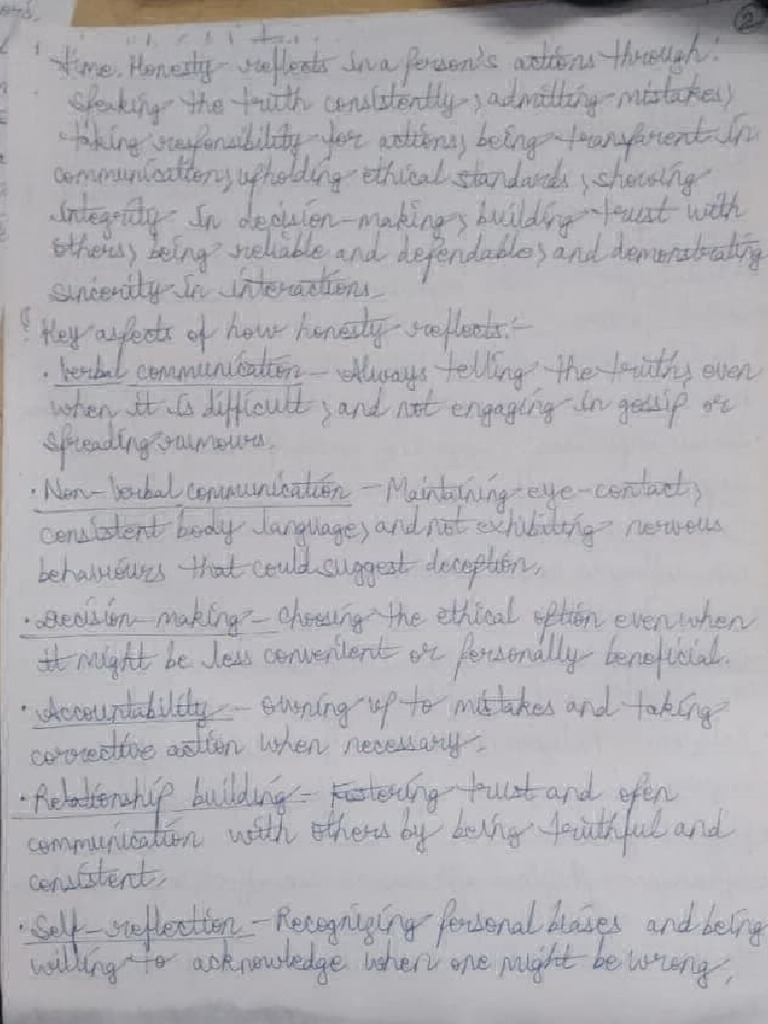 2
time. Honesty reflects in a person's actions through:
speaking the truth consistently, admitting mistakes,
taking responsibility for actions, being transparent in
communication, upholding ethical standards, showing
integrity in decision-making, building trust with
others, being reliable and dependable, and demonstrating
sincerity in interactions.
Key aspects of how honesty reflects:-
• Verbal communication - Always telling the truth, even
when it is difficult, and not engaging in gossip or
spreading rumours.
• Non-verbal communication - Maintaining eye-contact,
consistent body language, and not exhibiting nervous
behaviours that could suggest deception.
• Decision making - choosing the ethical option even when
it might be less convenient or personally beneficial.
• Accountability - owning up to mistakes and taking
corrective action when necessary.
• Relationship building - Fostering trust and open
communication with others by being truthful and
consistent.
• Self-reflection - Recognizing personal biases and being
willing to acknowledge when one might be wrong.